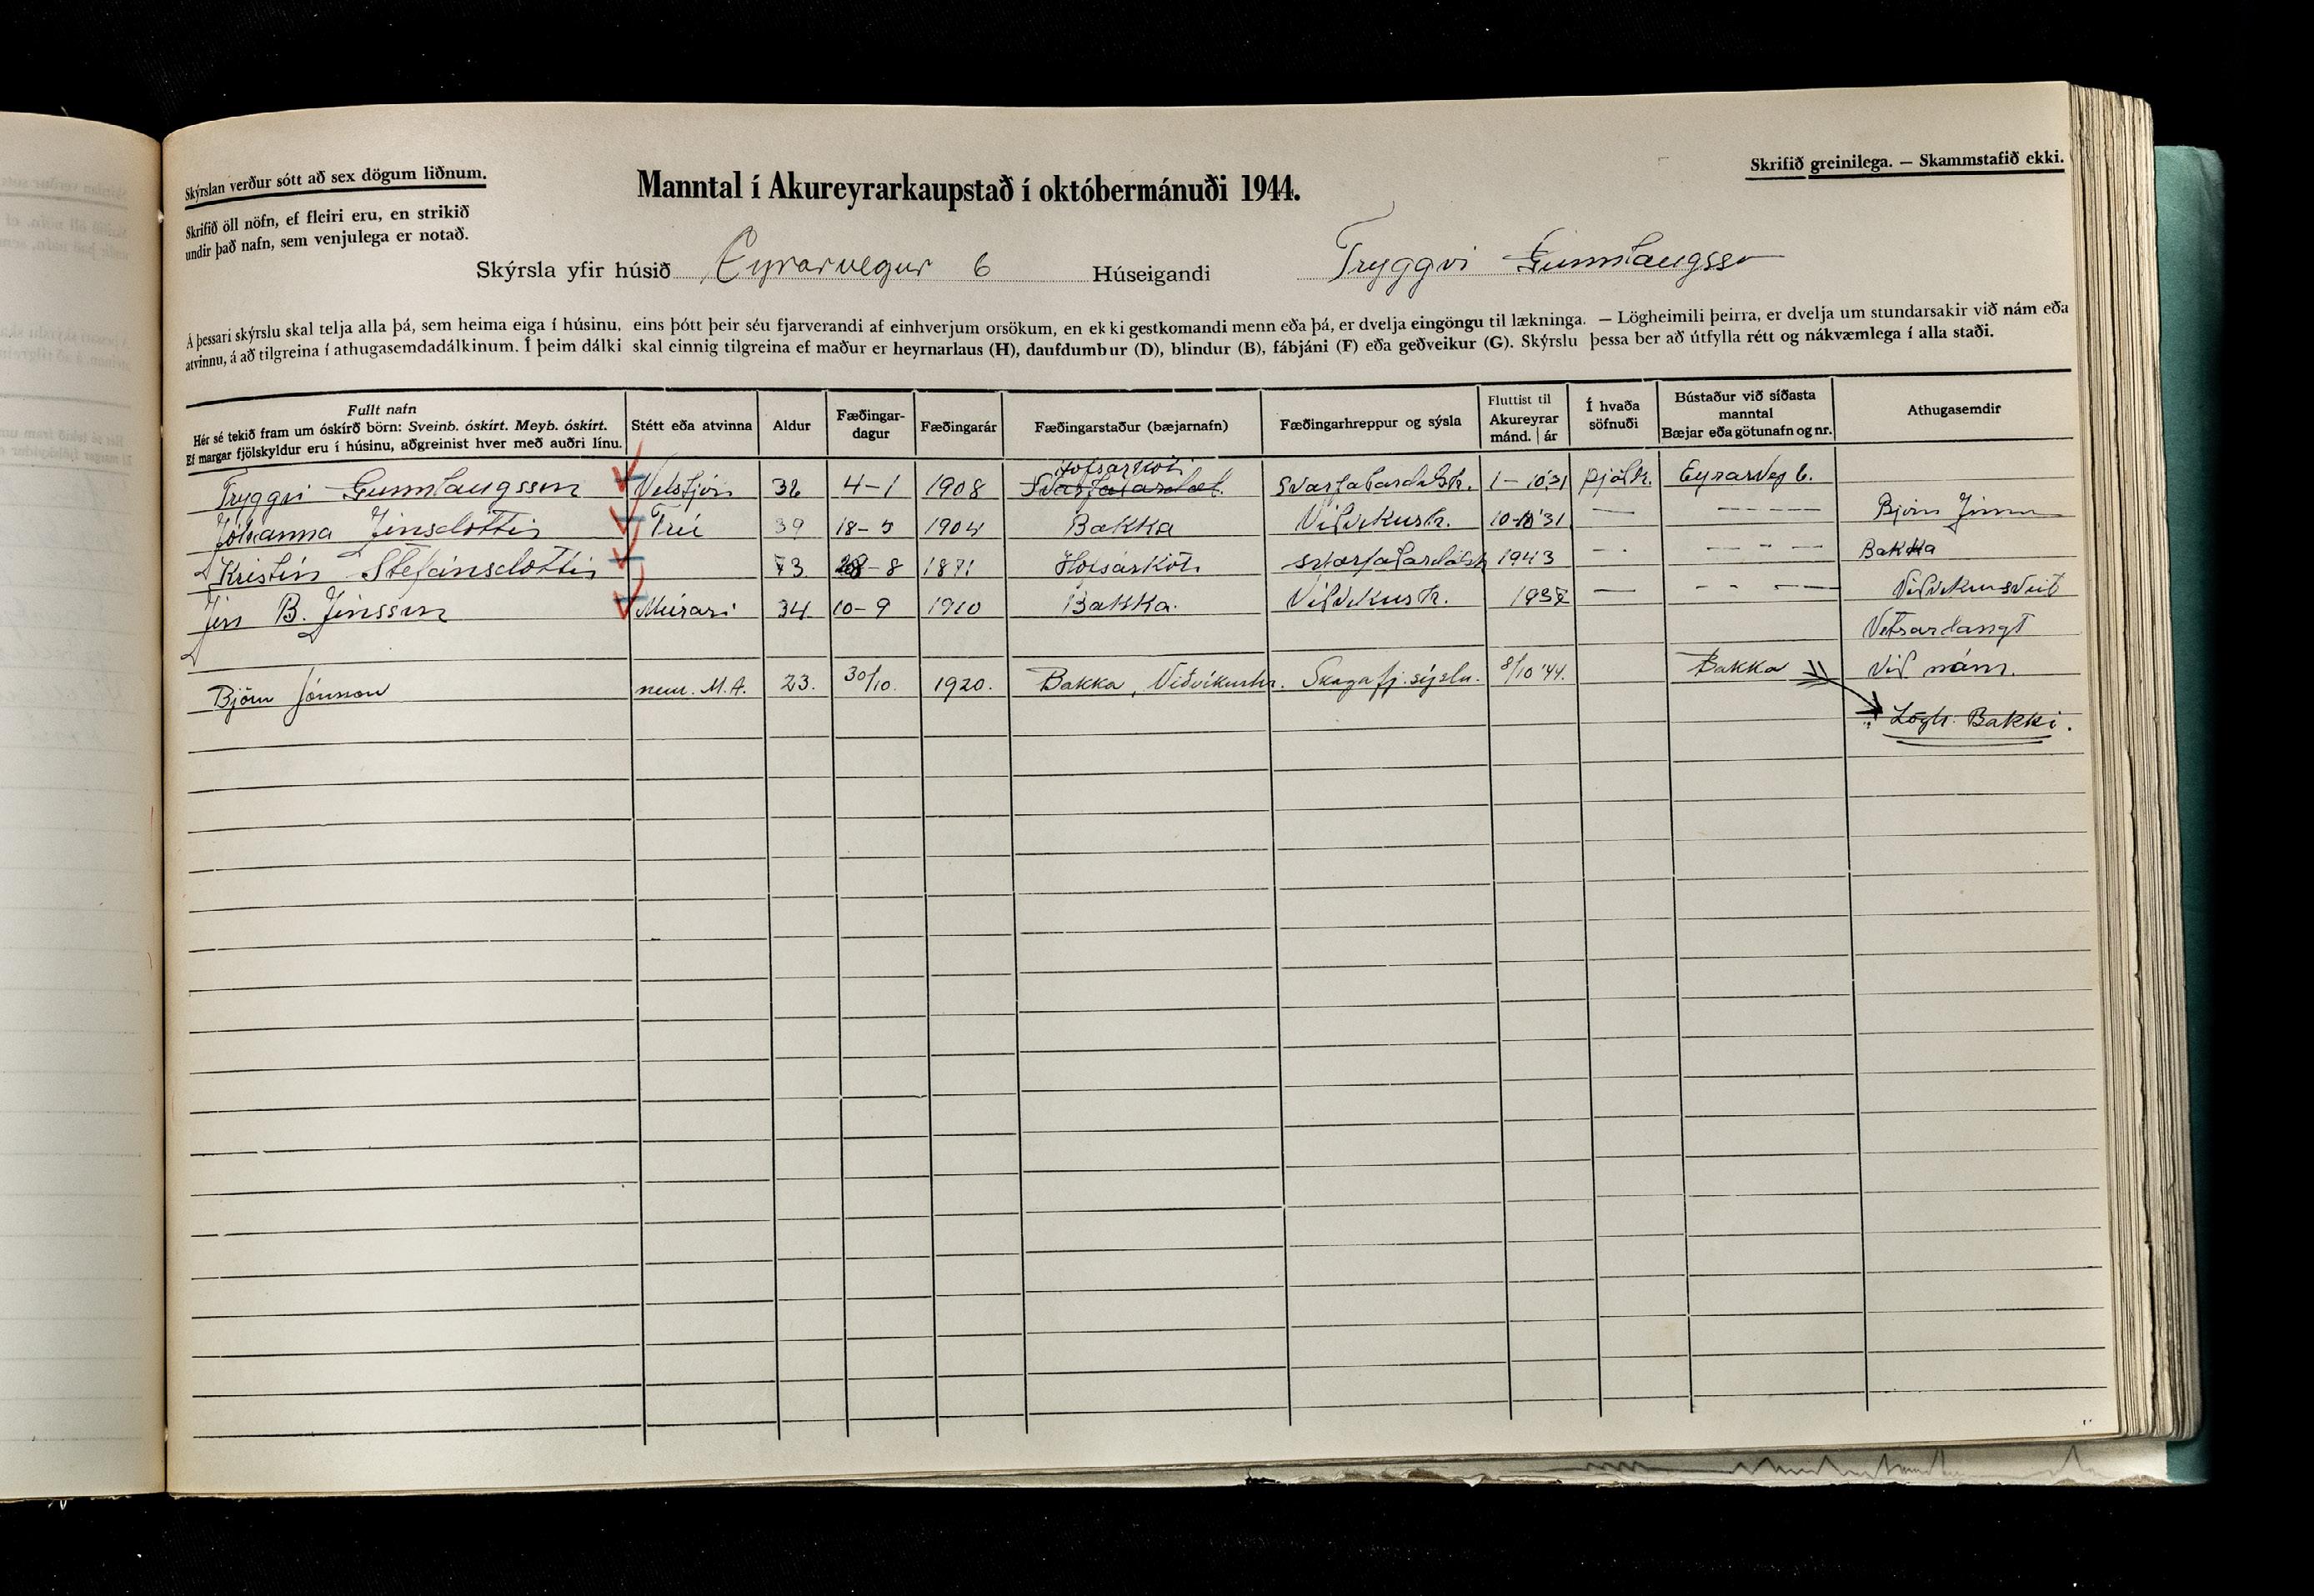 Skýrslan verður sótt að sex dögum liðnum.
Skrifið öll nöfn, ef fleiri eru, en strikið
undir það nafn, sem venjulega er notað.
Manntal í Akureyrarkaupstað í októbermánuði 1944.
Skrifið greinilega. — Skammstafið ekki.
Skýrsla yfir húsið Eyrarvegur 6 Húseigandi Tryggvi Gunnlaugsson
Á þessari skýrslu skal telja alla þá, sem heima eiga í húsinu, eins þótt þeir séu fjarverandi af einhverjum orsökum, en ekki gestkomandi menn eða þá, er dvelja eingöngu til lækninga. — Lögheimili þeirra, er dvelja um stundarsakir við nám eða
atvinnu, á að tilgreina í athugasemdadálkinum. Í þeim dálki skal einnig tilgreina ef maður er heyrnarlaus (H), daufdumbur (D), blindur (B), fábjáni (F) eða geðveikur (G). Skýrslu þessa ber að útfylla rétt og nákvæmlega í alla staði.
Fullt nafn
Hér sé tekið fram um óskírð börn: Sveinb. óskírt. Meyb. óskírt.
Ef margar fjölskyldur eru í húsinu, aðgreinist hver með auðri línu.
Stétt eða atvinna
Aldur
Fæðingar-
dagur
Fæðingarár
Fæðingarstaður (bæjarnafn)
Fæðingarhreppur og sýsla
Fluttist til
Akureyrar
mánd. | ár
Í hvaða
söfnuði
Bústaður við síðasta
manntal
Bæjar eða götunafn og nr.
Athugasemdir
Hofsárkoti
Tryggvi Gunnlaugsson Vélstjóri 36 4-1 1908 Svarfaðardal. Svarfaðardalshr. 1-10'31 Þjóðk. Eyrarveg 6.
Jóhanna Jónsdóttir Frú 39 18-5 1904 Bakka Viðvíkurhr. 10-10'31 — - - - — Björn Jónsson
Kristín Stefánsdóttir 73 28-8 1871 Hofsárkoti Svarfaðardalshr 1943 — - — - — Bakka
Jón B. Jónsson Múrari 34 10-9 1910 Bakka. Viðvíkurhr. 1937 — - - - — Viðvíkursveit
Vetrarlangt
við nám.
Björn Jónsson nem. M.A. 23. 30/10. 1920. Bakka, Viðvíkurhr. Skagafj.sýslu. 8/10 '44. Bakka
Lögh. Bakki.